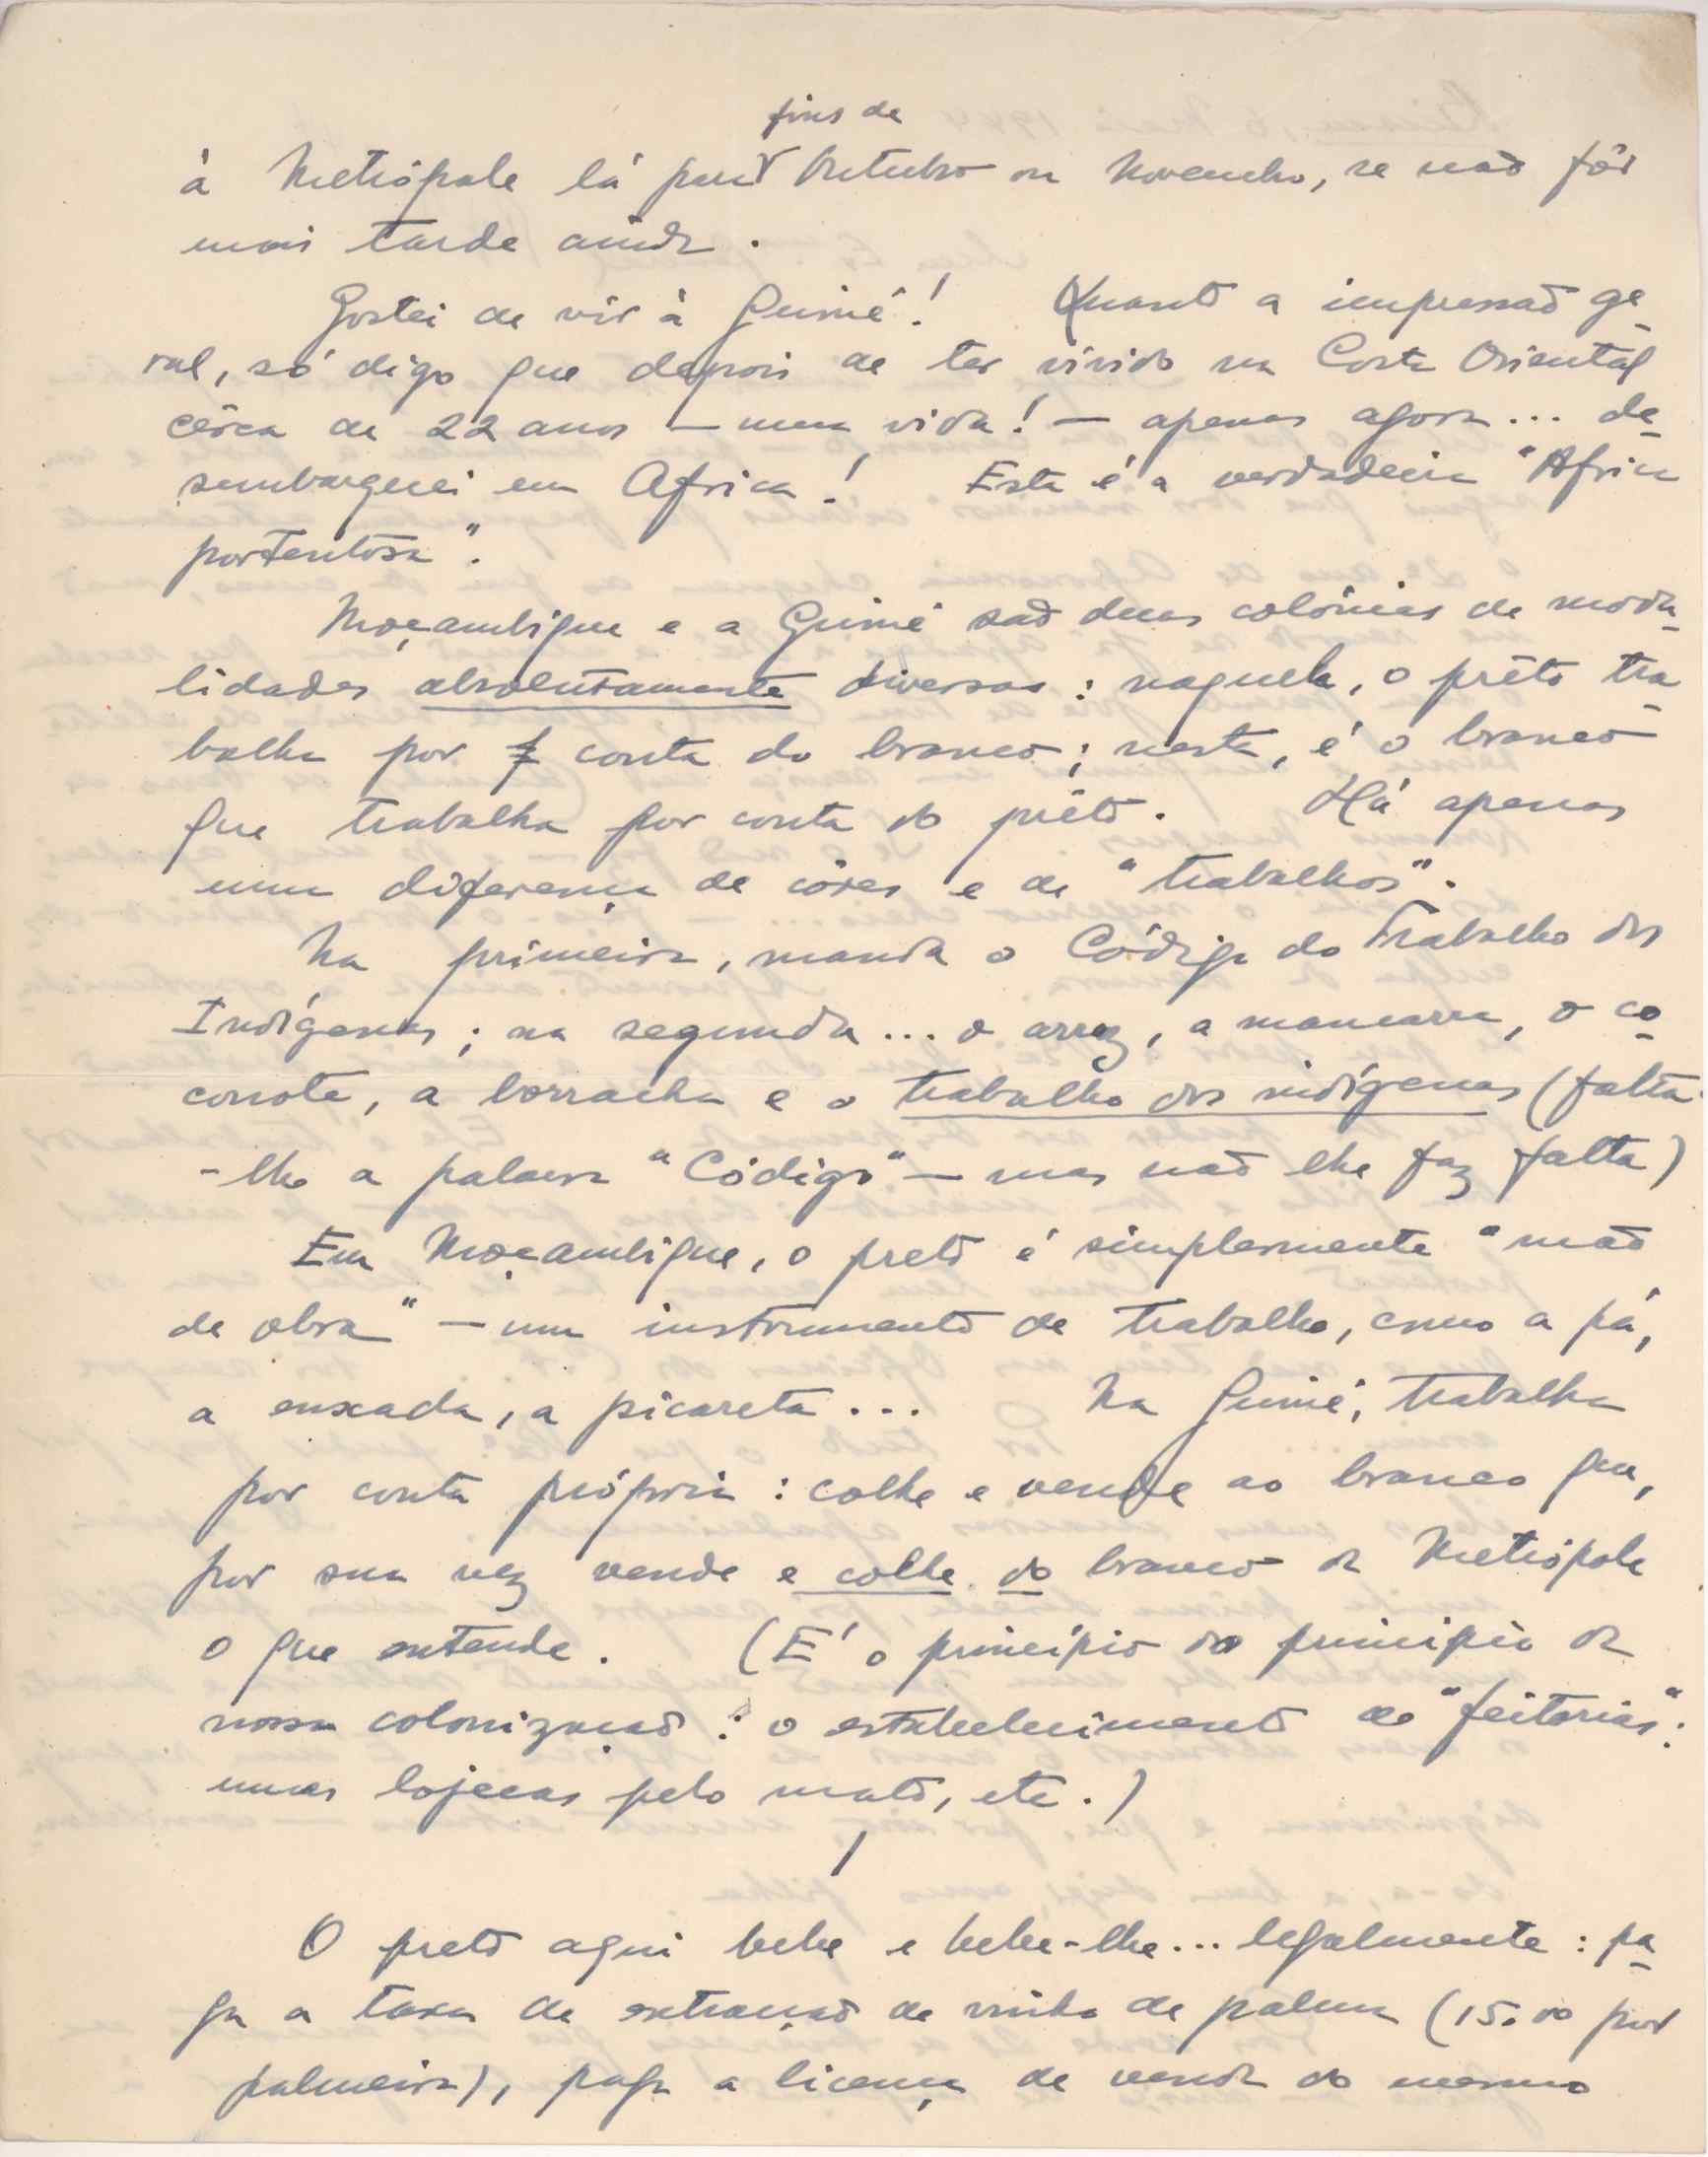 fins de
à Metrópole lá para Outubro ou Novembro, se não fôr
mais tarde ainda.
Gostei de vir à Guiné! Quanto a impressão ge
ral, só digo que depois de ter vivido na Costa Oriental
cêrca de 22 anos — uma vida! — apenas agora... de
sembarquei em Africa! Esta é a verdadeira "Africa
portentosa".
Moçambique e a Guiné são duas colónias de moda
lidades absolutamente diversas: naquela, o prêto tra
balha por conta do branco; nesta, é o branco
que trabalha por conta do prêto. Há apenas
uma diferença de côres e de "trabalhos".
Na primeira, manda o Código do Trabalho dos
Indígenas; na segunda... o arroz, a mancarra, o co
conote, a borracha e o trabalho dos indígenas (falta-
-lhe a palavra "Código" — mas não lhe faz falta)
Em Moçambique, o preto é simplesmente "mão
de obra" — um instrumento de trabalho, como a pá,
a enxada, a picareta... Na Guiné, trabalha
por conta própria: colhe e vende ao branco que,
por sua vez vende e colhe do branco da Metrópole
o que entende. (E' o princípio do princípio da
nossa colonização: o estabelecimento de "feitorias":
umas lojecas pelo mato, etc.)
/
O preto aqui bebe e bebe-lhe... legalmente: pa
ga a taxa de extracção de vinho de palma (15.00 por
palmeira), paga a licença de venda do mesmo